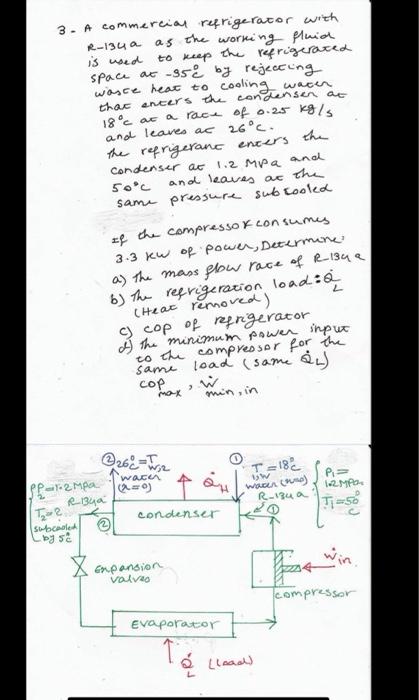 3- A commercial refrigerator with
R-134a as the working fluid
is used to keep the refrigerated
space at -35°c by rejecting
waste heat to cooling water
that enters the condenser at
18°c at a rate of 0.25 kg/s
and leaves at 26°c.
the refrigerant enters the
condenser at 1.2 MPa and
50°c and leaves at the
same pressure subcooled
If the compressor consumes
3.3 kw of power, Determine:
a) The mass flow rate of R-134a
b) The refrigeration load: Q̇L
(Heat removed)
c) cop of refrigerator
d) the minimum power input
to the compressor for the
same load (same Q̇L)
cop max, Ẇ min, in
② 26°c = Tw,2
water
(x=0)
Q̇H
①
T = 18°c
1,w
water (x=0)
R-134a
P1 =
1.2 MPa
T1 = 50°c
P2 = 1.2 MPa
R-134a
T2 = ?
subcooled
by 5°c
②
condenser
①
Expansion
valves
Ẇin
compressor
Evaporator
Q̇L (load)